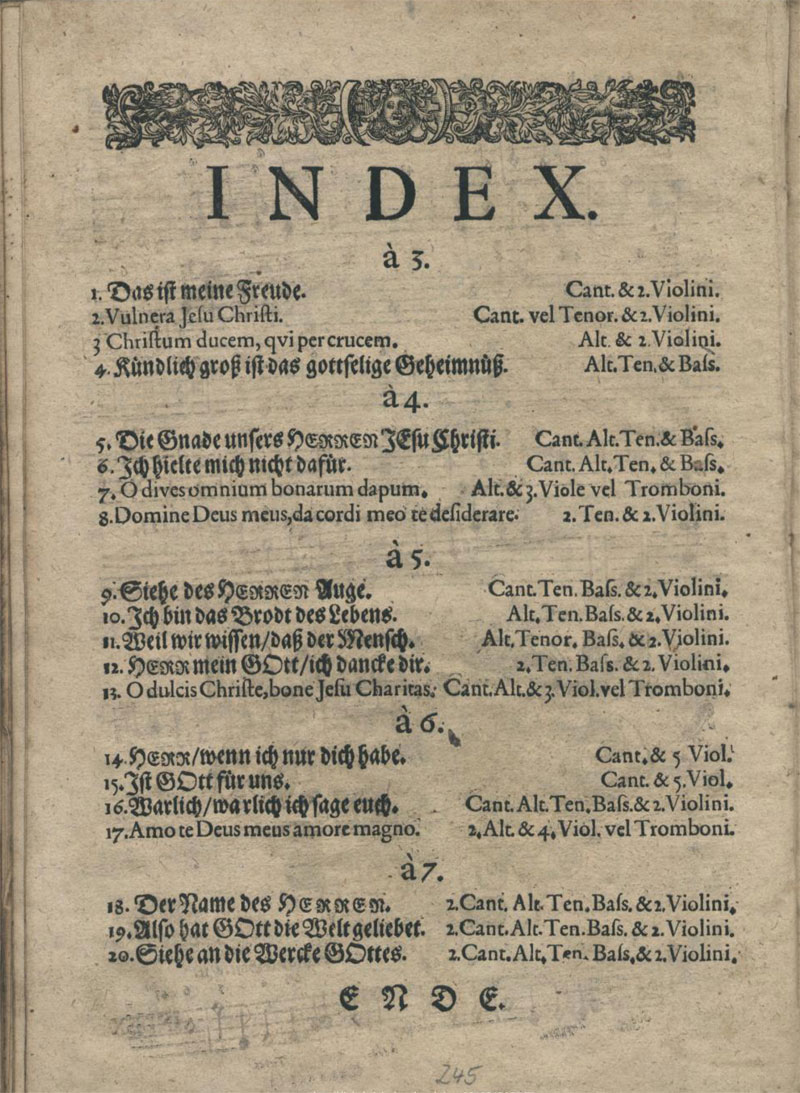 INDEX.
à 3.
1. Das ist meine Freude. Cant. & 2. Violini.
2. Vulnera Jesu Christi. Cant. vel Tenor. & 2. Violini.
3 Christum ducem, qvi per crucem. Alt. & 2. Violini.
4. Kündlich groß ist das gottselige Geheimnüß. Alt. Ten. & Bass.
à 4.
5. Die Gnade unsers HERREN JEsu Christi. Cant. Alt. Ten. & Bass.
6. Ich hielte mich nicht dafür. Cant. Alt. Ten. & Bass.
7. O dives omnium bonarum dapum. Alt. & 3. Viole vel Tromboni.
8. Domine Deus meus, da cordi meo te desiderare. 2. Ten. & 2. Violini.
à 5.
9. Siehe des HERREN Auge. Cant. Ten. Bass. & 2. Violini.
10. Ich bin das Brodt des Lebens. Alt. Ten. Bass. & 2. Violini.
11. Weil wir wissen/daß der Mensch. Alt. Tenor. Bass. & 2. Violini.
12. HERR mein GOtt/ich dancke dir. 2. Ten. Bass. & 2. Violini.
13. O dulcis Christe, bone Jesu Charitas. Cant. Alt. & 3. Viol. vel Tromboni.
à 6.
14. HERR/wenn ich nur dich habe. Cant. & 5 Viol.
15. Ist GOtt für uns. Cant. & 5. Viol.
16. Warlich/warlich ich sage euch. Cant. Alt. Ten. Bass. & 2. Violini.
17. Amo te Deus meus amore magno. 2. Alt. & 4. Viol. vel Tromboni.
à 7.
18. Der Name des HERREN. 2. Cant. Alt. Ten. Bass. & 2. Violini.
19. Also hat GOtt die Welt geliebet. 2. Cant. Alt. Ten. Bass. & 2. Violini.
20. Siehe an die Wercke GOttes. 2. Cant. Alt. Ten. Bass. & 2. Violini.
ENDE.
245